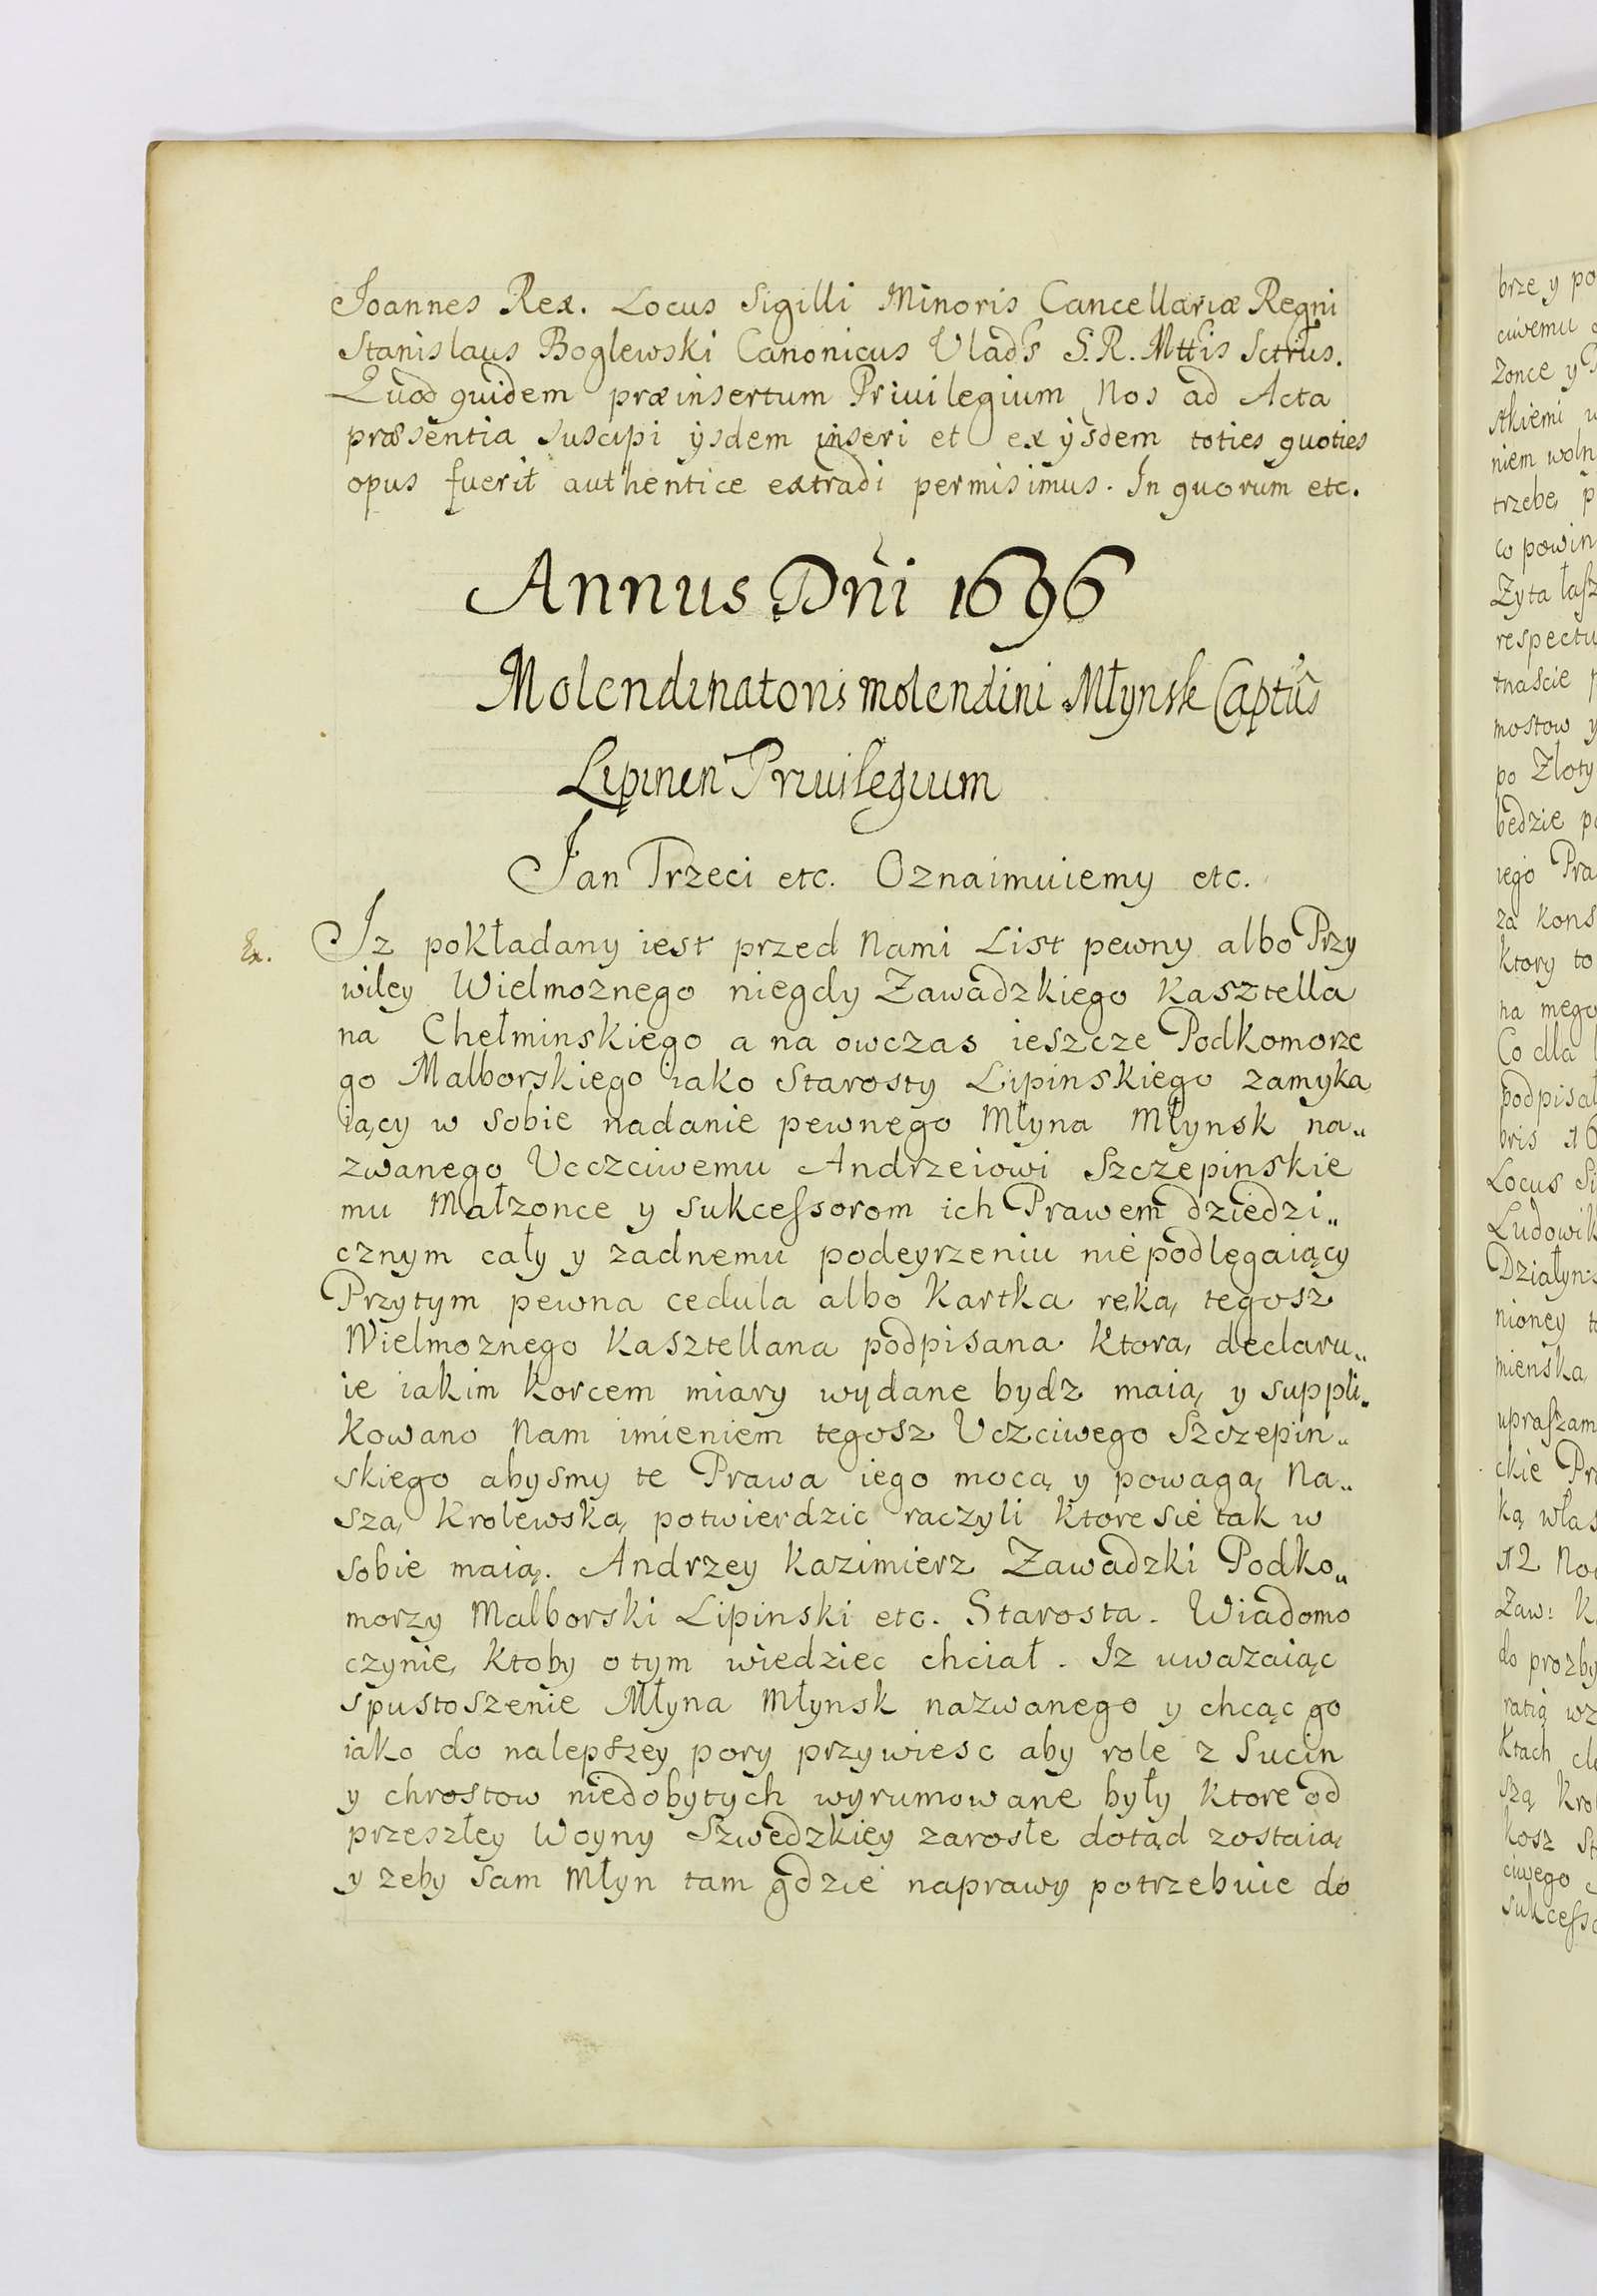 Joannes Rex. Locus Sigilli Minoris Cancellariæ Regni
Stanislaus Boglewski Canonicus Vlads S. R. Mttis Sctrius.
Quod quidem præinsertum Priuilegium Nos ad Acta
præsentia suscipi ÿsdem inseri et ex ÿsdem toties quoties
opus fuerit authentice extradi permisimus. In quorum etc.
Annus Dñi 1696
Molendinatoris molendini Młynsk Captus
Lipinen Priuilegium
Jan Trzeci etc. Oznaimuiemy etc.
Ex. Jz pokładany iest przed Nami List pewny albo Przy
wiley Wielmoznego niegdy Zawadzkiego Kasztella
na Chełminskiego a na owczas ieszcze Podkomorze
go Malborskiego iako Starosty Lipinskiego zamyka
iący w sobie nadanie pewnego Młyna Młynsk na„
zwanego Vcczciwemu Andrzeiowi Szczepinskie
mu Małzonce y sukcessorom ich Prawem dziedzi„
cznym cały y zadnemu podeyrzeniu niepodlęgaiący
Przytym pewna cedula albo Kartka ręką tegosz
Wielmoznego Kasztellana podpisana Ktorą declaru„
ie iakim Korcem miary wydane bydz maią y suppli„
kowano Nam imieniem tegosz Vczciwego Szczepin„
skiego abysmy te Prawa iego mocą y powagą Na„
szą Krolewską potwierdzic raczyli Ktore się tak w
sobie maią. Andrzey Kazimierz Zawadzki Podko„
morzy Malborski Lipinski etc. Starosta. Wiadomo
czynię Ktoby o tym wiedziec chciał. Iz uwazaiąc
spustoszenie Młyna Młynsk nazwanego y chcąc go
iako do nalepszey pory przywiesc aby role z Sucin
y chrostow niedobytych wyrumowane były Ktore od
przeszłey Woyny Szwedzkiey zarosłe dotąd zostaią
y zeby sam Młyn tam gdzie naprawy potrzebuie do
brze y po
zonce y
stkiemi w
niem woln
trzebę p
co powin
Zyta łasz
respectu
tnascie p
mostow y
po Złoty
bedzie po
iego Pra
za kons
ktory to
na mego
Co dla
podpisał
bris 16
Locus Si
Ludowik
Działyns
nioney t
mienska
upraszam
ckie Pra
ką włas
12 No
Zaw: K
do prozby
ratią wz
Ktach
szą Kro
kosz St
ciwego
sukcesso